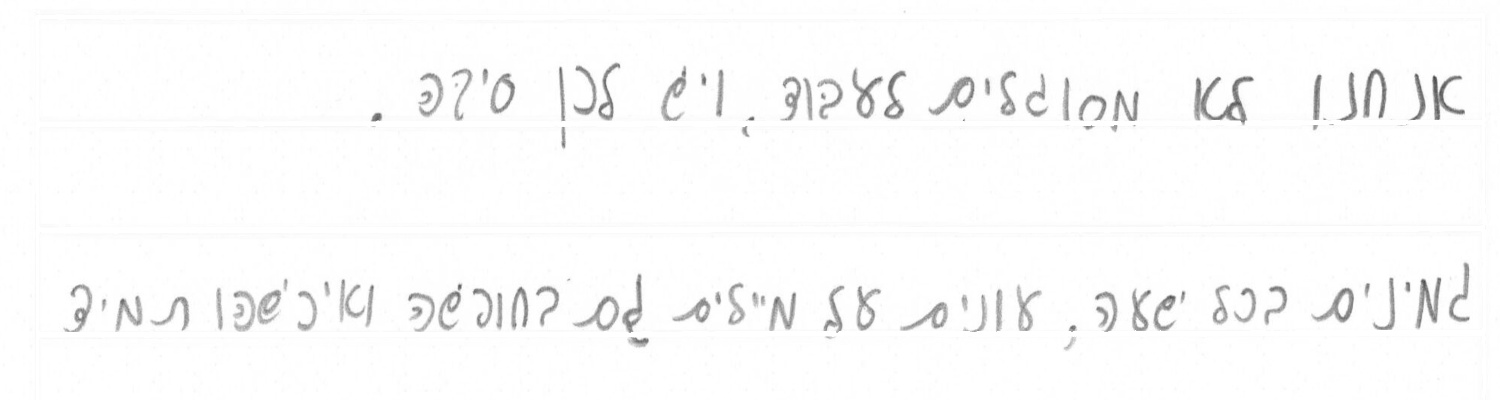 אנחנו לא מסוגלים לעבוד, ויש לכן סיבה.
זמינים בכל שעה, עונים על מיילים גם בחופשה ואיכשהו תמיד